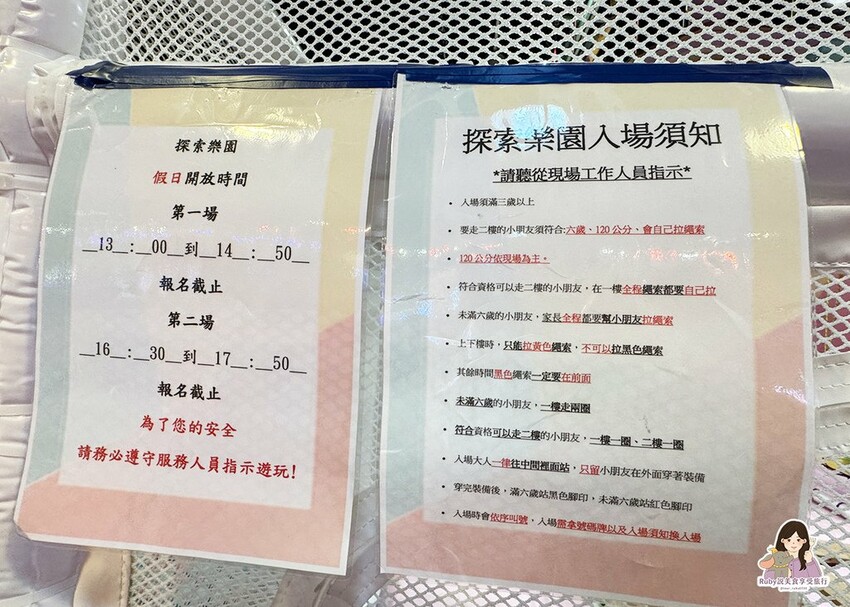 探索樂園
假日開放時間
第一場
__13__:__00__到__14__:__50__
報名截止
第二場
__16__:__30__到__17__:__50__
報名截止
為了您的安全
請務必遵守服務人員指示遊玩!
探索樂園入場須知
*請聽從現場工作人員指示*
• 入場須滿三歲以上
• 要走二樓的小朋友須符合:六歲、120公分、會自己拉繩索
• 120公分依現場為主。
• 符合資格可以走二樓的小朋友，在一樓全程繩索都要自己拉
• 未滿六歲的小朋友，家長全程都要幫小朋友拉繩索
• 上下樓時，只能拉黃色繩索，不可以拉黑色繩索
• 其餘時間黑色繩索一定要在前面
• 未滿六歲的小朋友，一樓走兩圈
• 符合資格可以走二樓的小朋友，一樓一圈、二樓一圈
• 入場大人一律往中間裡面站，只留小朋友在外面穿著裝備
• 穿完裝備後，滿六歲站黑色腳印，未滿六歲站紅色腳印
• 入場時會依序叫號，入場需拿號碼牌以及入場須知換入場
Ruby說美食享受旅行